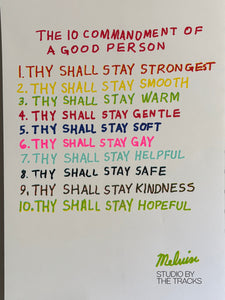 THE 10 COMMANDMENT OF
A GOOD PERSON
1. THY SHALL STAY STRONGEST
2. THY SHALL STAY SMOOTH
3. THY SHALL STAY WARM
4. THY SHALL STAY GENTLE
5. THY SHALL STAY SOFT
6. THY SHALL STAY GAY
7. THY SHALL STAY HELPFUL
8. THY SHALL STAY SAFE
9. THY SHALL STAY KINDNESS
10. THY SHALL STAY HOPEFUL
STUDIO BY
THE TRACKS